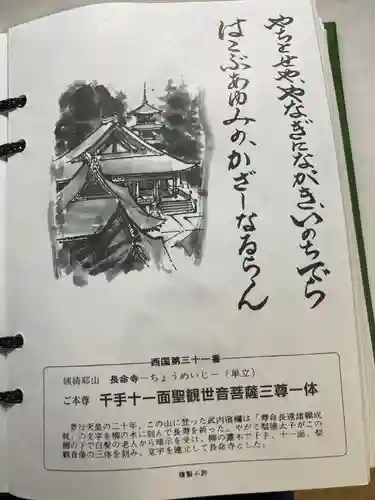 やちとせや、やなぎにながき、いのちでら
はこぶあゆみの、かざしなるらん
西国第三十一番
姨綺耶山 長命寺―ちょうめいじ―(単立)
ご本尊 千手十一面聖観世音菩薩三尊一体
景行天皇の二十年、この山に登った武内宿禰は「寿命長遠諸願成
就」の文字を柳の木に刻んで長寿を祈った。やがて聖徳太子がこの
柳の下で白髪の老人から暗示を受け、柳の霊木で千手、十一面、聖
観音像の三体を刻み、堂宇を建立して長命寺とした。
複製不許